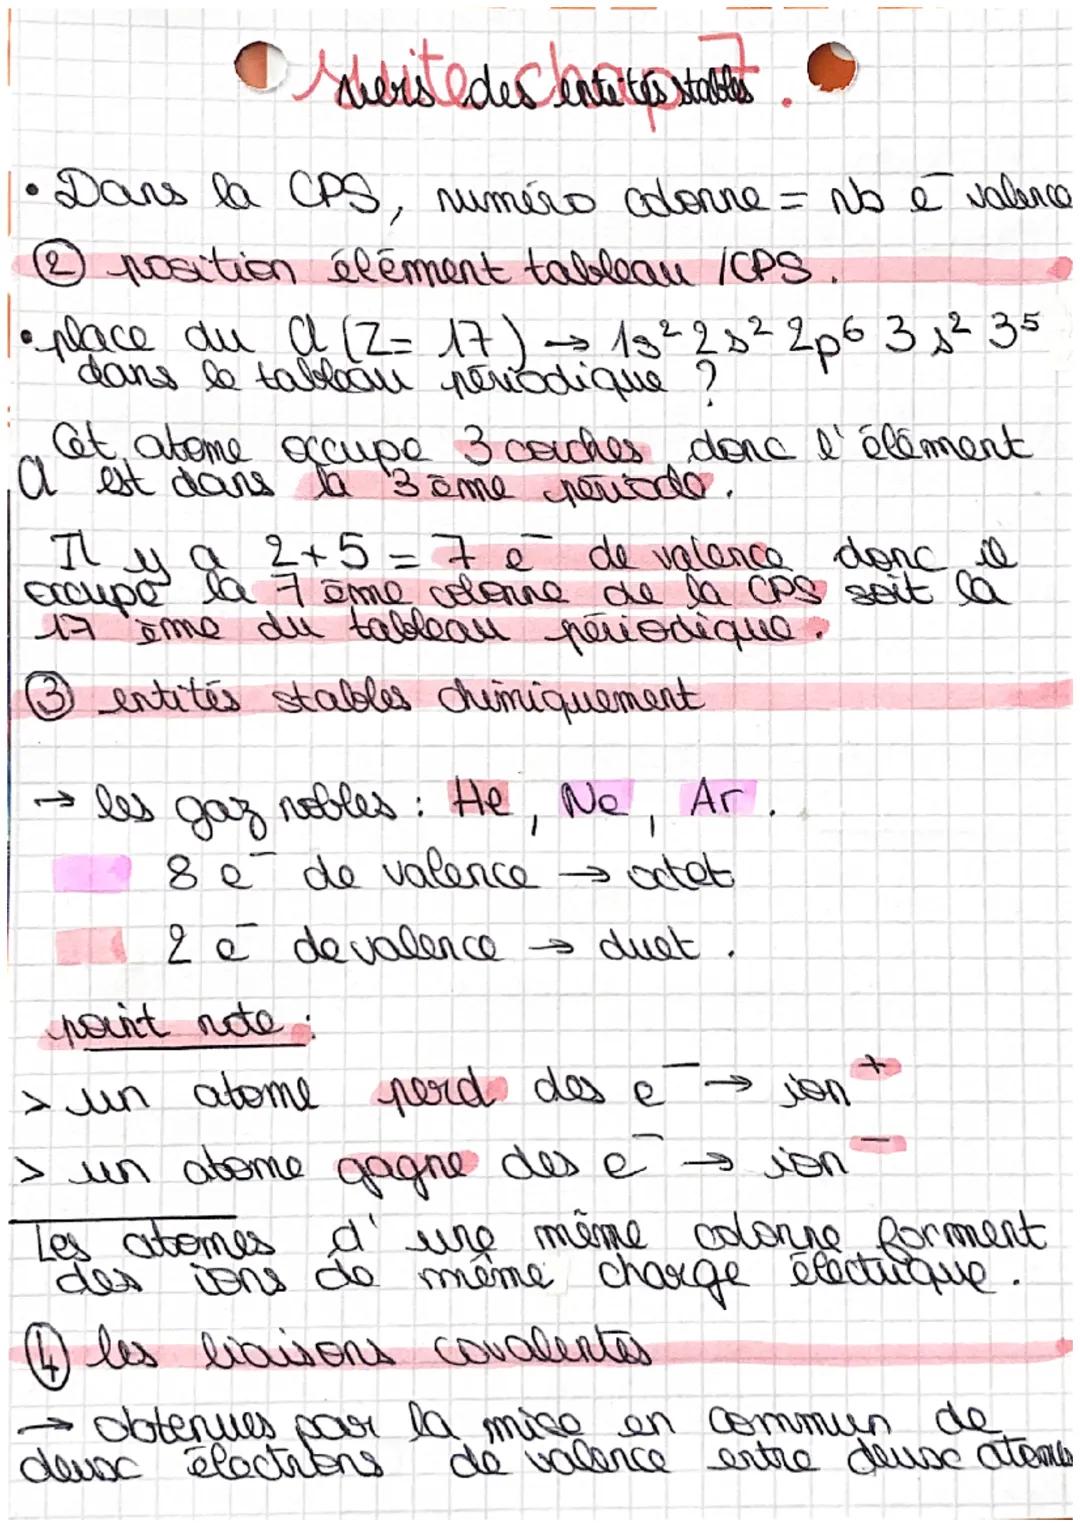 suite chap 7.
vers des entités stables
• Dans la CPS, numéro colonne = nb e⁻ valence
② position élément tableau / CPS.
• place du Cl (Z= 17) → 1s² 2s² 2p⁶ 3s² 3⁵
dans le tableau périodique ?
Cet atome occupe 3 couches donc l'élément
Cl est dans la 3ème période.
Il y a 2+5 = 7 e⁻ de valence donc il
occupe la 7ème colonne de la CPS soit la
17 ème du tableau périodique.
③ entités stables chimiquement
→ les gaz nobles : He, Ne, Ar.
8 e⁻ de valence → octet
2 e⁻ de valence → duet.
point note :
> un atome perd des e⁻ → ion⁺
> un atome gagne des e⁻ → ion⁻
Les atomes d'une même colonne forment
des ions de même charge électrique.
④ les liaisons covalentes
→ obtenues par la mise en commun de
deux électrons de valence entre deux atomes